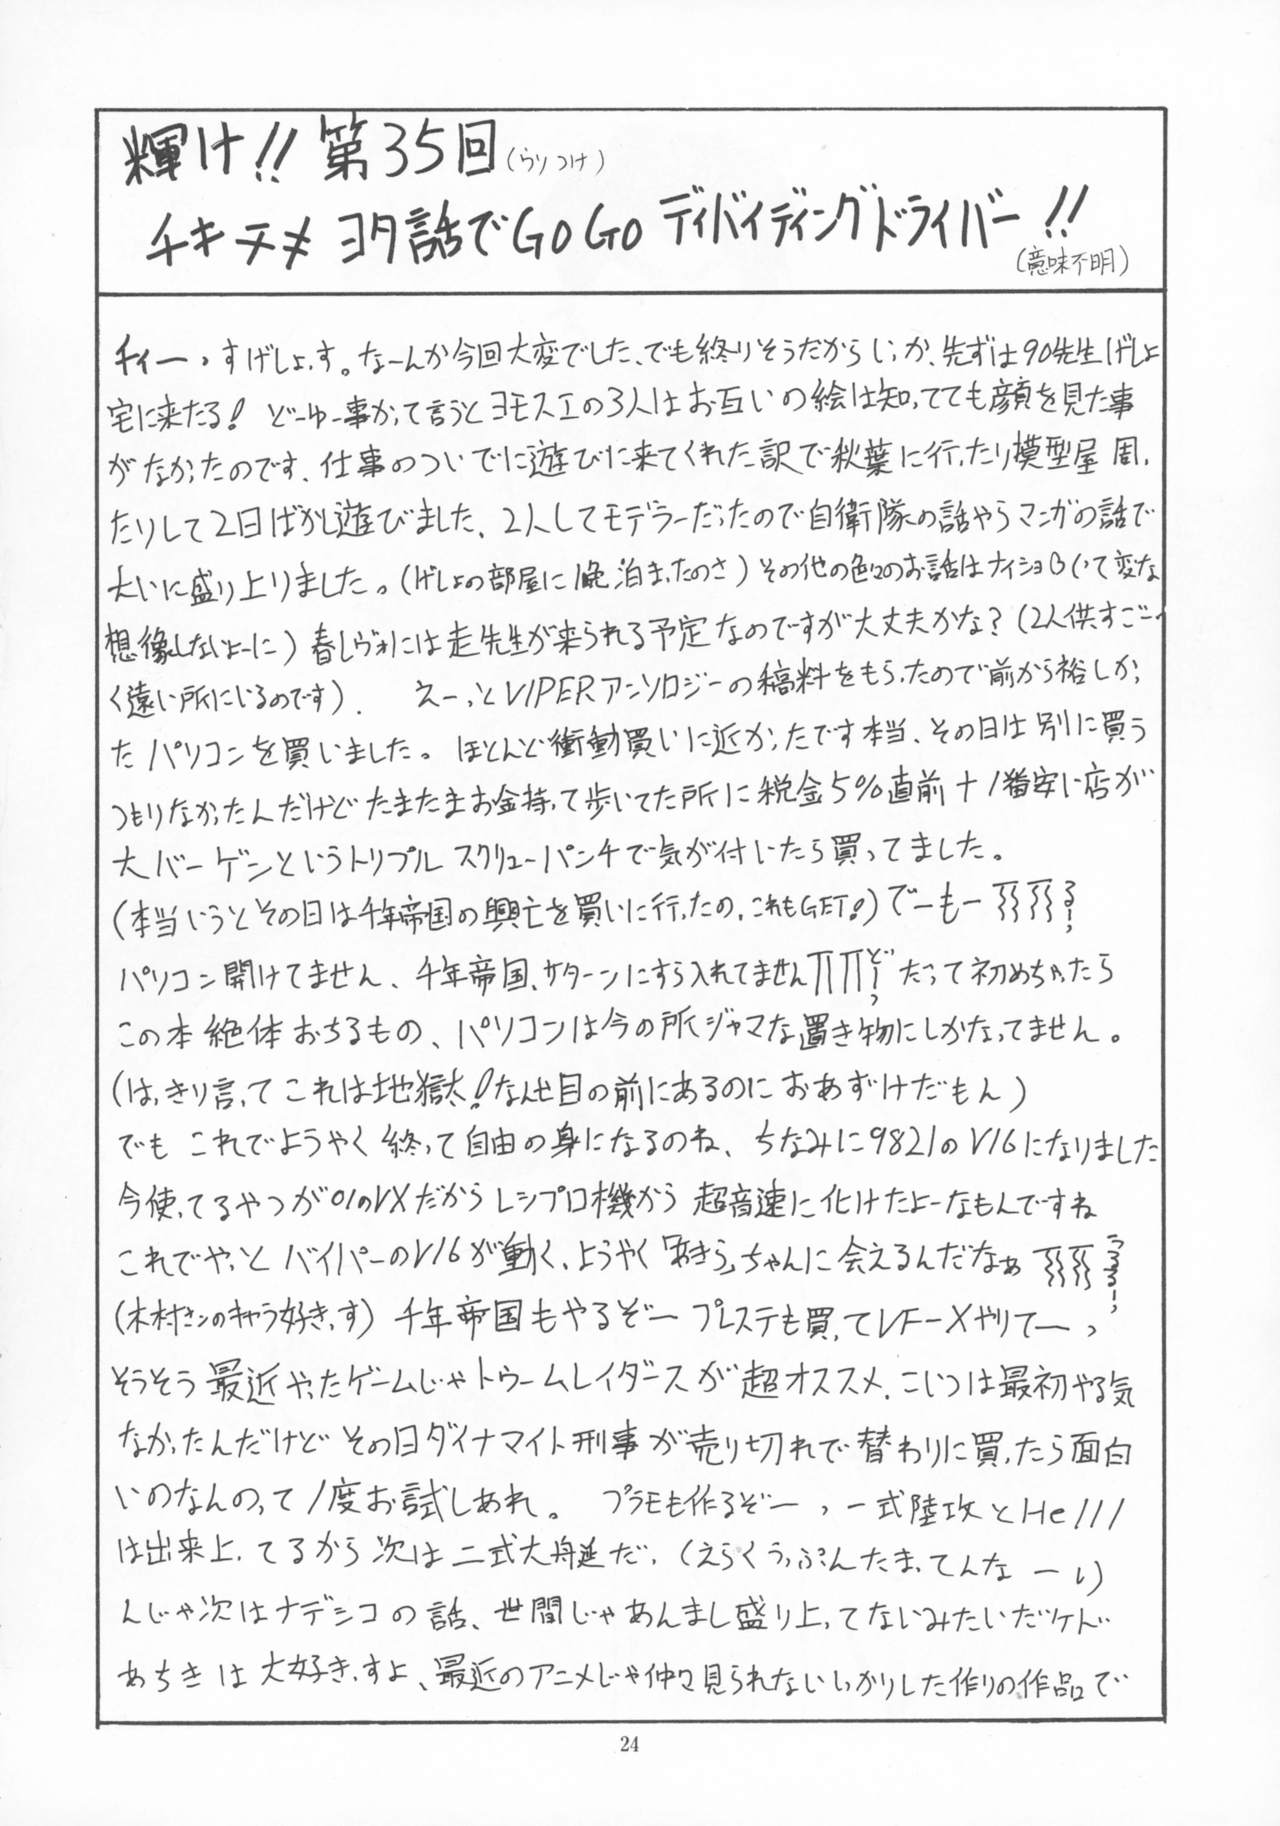 輝け!! 第35回(うりつけ)
チキチキ ヨタ話でGoGo ディバイディングドライバー!!
(意味不明)
チィーっすげしょっす。なーんか今回大変でした、でも終りそうだからいっか、先ずは90先生げしょ
宅に来たる! どーゆー事かって言うとヨモスエの3人はお互いの絵は知ってても顔を見た事
がなかったのです、仕事のついでに遊びに来てくれた訳で秋葉に行ったり模型屋周っ
たりして2日ばかし遊びました、2人してモデラーだったので自衛隊の話やらマンガの話で
大いに盛り上りました。(げしょの部屋に1晩泊まったのさ)その他の色々のお話はナイショ(って変な
想像しないよーに) 春レヴォには走先生が来られる予定なのですが大丈夫かな?(2人供すごーー
く遠い所にいるのです). えーっとVIPERアンソロジーの稿料をもらったので前から欲しかっ
たパソコンを買いました。ほとんど衝動買いに近かったです本当、その日は別に買う
つもりなかったんだけどたまたまお金持って歩いてた所に税金5%直前+1番安い店が
大バーゲンというトリプルスクリューパンチで気が付いたら買ってました。
(本当いうとその日は千年帝国の興亡を買いに行ったの、これもGET!)でーもー
パソコン開けてません、千年帝国、サターンにすら入れてません だって初めちゃったら
この本絶体おちるもの、パソコンは今の所ジャマな置き物にしかなってません。
(はっきり言ってこれは地獄だ!なんせ目の前にあるのにおあずけだもん)
でもこれでようやく終って自由の身になるのね、ちなみに9821のV16になりました
今使ってるやつが01のVXだからレシプロ機から超音速に化けたよーなもんですね
これでやっとバイパーのV16が動く、ようやく「あきら」ちゃんに会えるんだなぁ
(木村サンのキャラ好きっす)千年帝国もやるぞー プレステも買ってVF-Xやりてーっ
そうそう最近やったゲームじゃトゥームレイダースが超オススメ、こいつは最初やる気
なかったんだけどその日ダイナマイト刑事が売り切れで替わりに買ったら面白
いのなんのって1度お試しあれ。 プラモも作るぞーっ 一式陸攻とHe111
は出来上ってるから次は二式大艇だ、(えらくうっぷんたまってんなーい)
んじゃ次はナデシコの話、世間じゃあんまし盛り上ってないみたいだケド
あちきは大好きっすよ、最近のアニメじゃ仲々見られないしっかりした作りの作品で
24